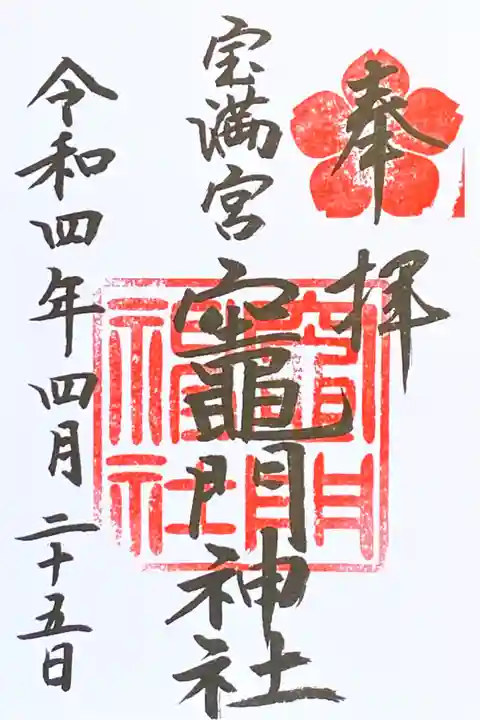 奉拝
宝満宮
竈門神社
竈門神社
令和四年四月二十五日